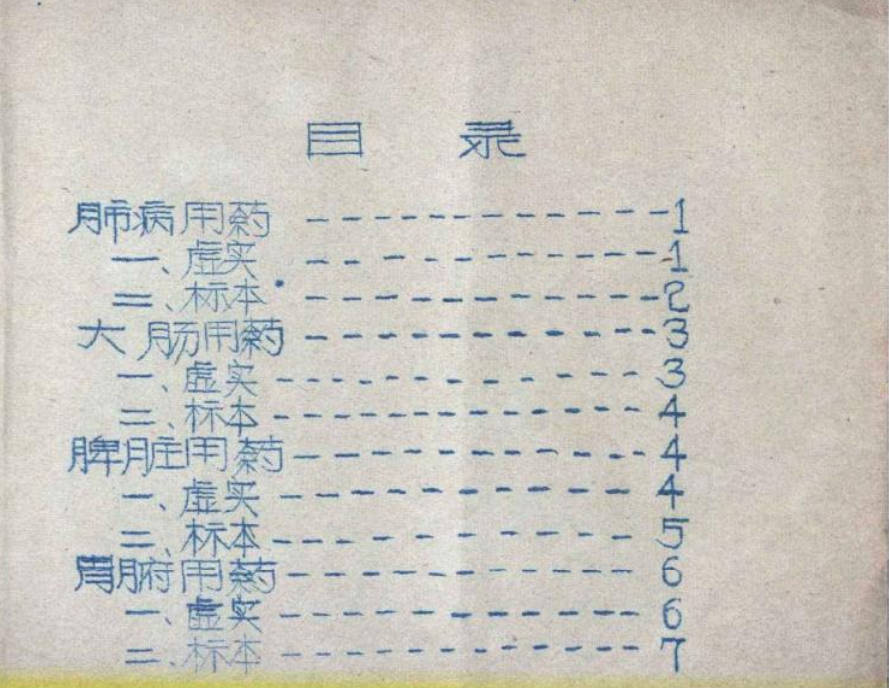 目 录
肺病用药 ------------1
一、虚实 ------------1
二、标本 ------------2
大肠用药 ------------3
一、虚实 ------------3
二、标本 ------------4
脾脏用药 ------------4
一、虚实 ------------4
二、标本 ------------5
胃腑用药 ------------6
一、虚实 ------------6
二、标本 ------------7